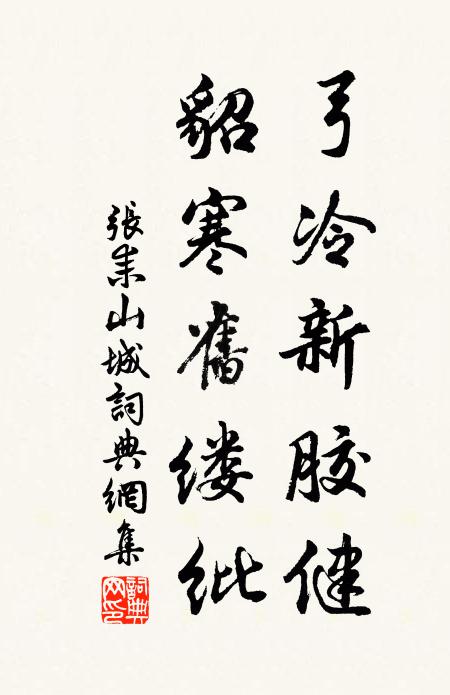 弓冷新胶健
貂寒舊缕紕
張耒山城詞典網集
詞典
网印